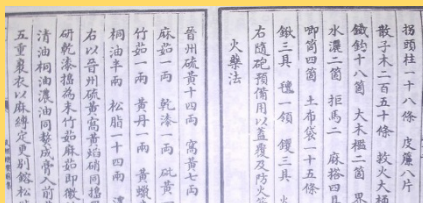 拐頭柱一十八條 皮簾八片
散子木二百五十條 救火大桶
鐵鈎十八箇 大木檻二箇 界
水濃二箇 拒馬二 麻搭四具
唧筒四箇 土布袋一十五條
鍬三具 氊一領 钁三具 火
右隨砲預備用以蓋覆及防火
火藥法
晉州硫黃十四兩 窩黃七兩
麻茹一兩 乾漆一兩 砒黃
竹茹一兩 黃丹一兩 黃蠟
桐油半兩 松脂一十四兩 濃
右以晉州硫黃窩黃焰硝同擣羅
研乾漆擣為末竹茹麻茹即微
清油桐油濃油同熬成膏入前
五重裹衣以麻縛定更別鎔松